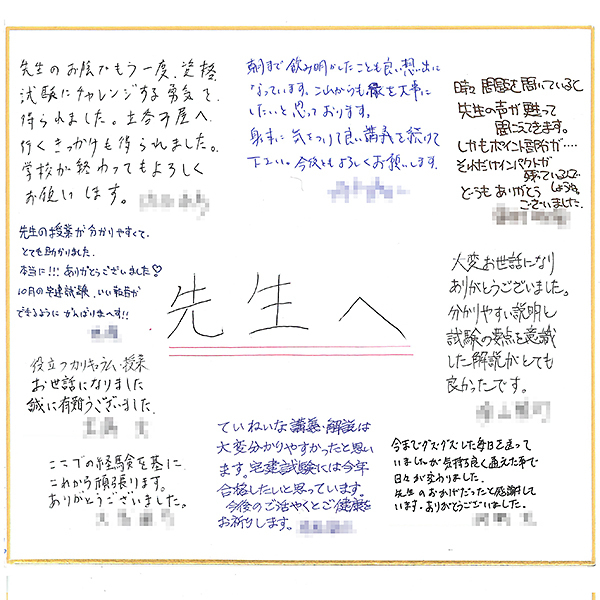 先生のお陰でもう一度、資格
試験にチャレンジする勇気を
得られました。土各方屋へ
行くきっかけも得られました。
学校が終わってもよろしく
お願いします。
朝まで飲み明かしたことも良い想い出に
なっています。これからも縁を大事に
したいと思っております。
身体に気をつけて良い講義を続けて
下さい。今後ともよろしくお願いします。
時々問題を聞いていると
先生の声が甦って
聞こえてきます。
しかもポイント部分が‥‥
それだけインパクトが
残っているので
しょうね
どうもありがとう
ございました。
先生の授業が分かりやすくて、
とても助かりました
本当に!!!ありがとうございました♡
10月の宅建試験、いい報告が
できるようにがんばりまーす!!
先生へ
大変お世話になり
ありがとうございました。
分かりやすい説明と
試験の要点を意識
した解説がとても
良かったです。
役立つカリキュラム、授業
お世話になりました
誠に有難うございました。
ていねいな講義・解説は
大変分かりやすかったと思い
ます。宅建試験には今年
合格したいと思っています。
今後のご活やくとご健康を
お祈りします。
今までグズグズした毎日を送って
いましたが気持ち良く通えた事で
日々が変わりました。
先生のおかげだったと感謝して
います。ありがとうございました。
ここでの経験を基に
これから頑張ります。
ありがとうございました。